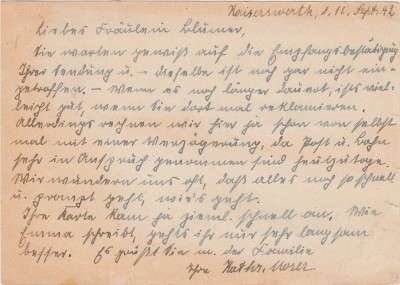 Kaiserswerth, d. 11. Sept. 42
Liebes Fräulein Blümer,
Sie warten gewiß auf die Empfangsbestätigung
Ihrer Sendung u. – dieselbe ist noch gar nicht ein-
getroffen. – Wenn es noch länger dauert, ists viel-
leicht gut, wenn Sie dort mal reklamieren.
Allerdings rechnen wir hier ja schon von selbst
mal mit einer Verzögerung, da Post u. Bahn
sehr in Anspruch genommen sind heutzutage.
Wir wundern uns oft, daß alles noch so schnell
u. prompt geht, wie's geht.
Ihre Karte kam ja zieml. schnell an. Wie
Emma schreibt, geht's ihr nur sehr langsam
besser. Es grüßt Sie m. der Familie
Ihre Kathr. Moser